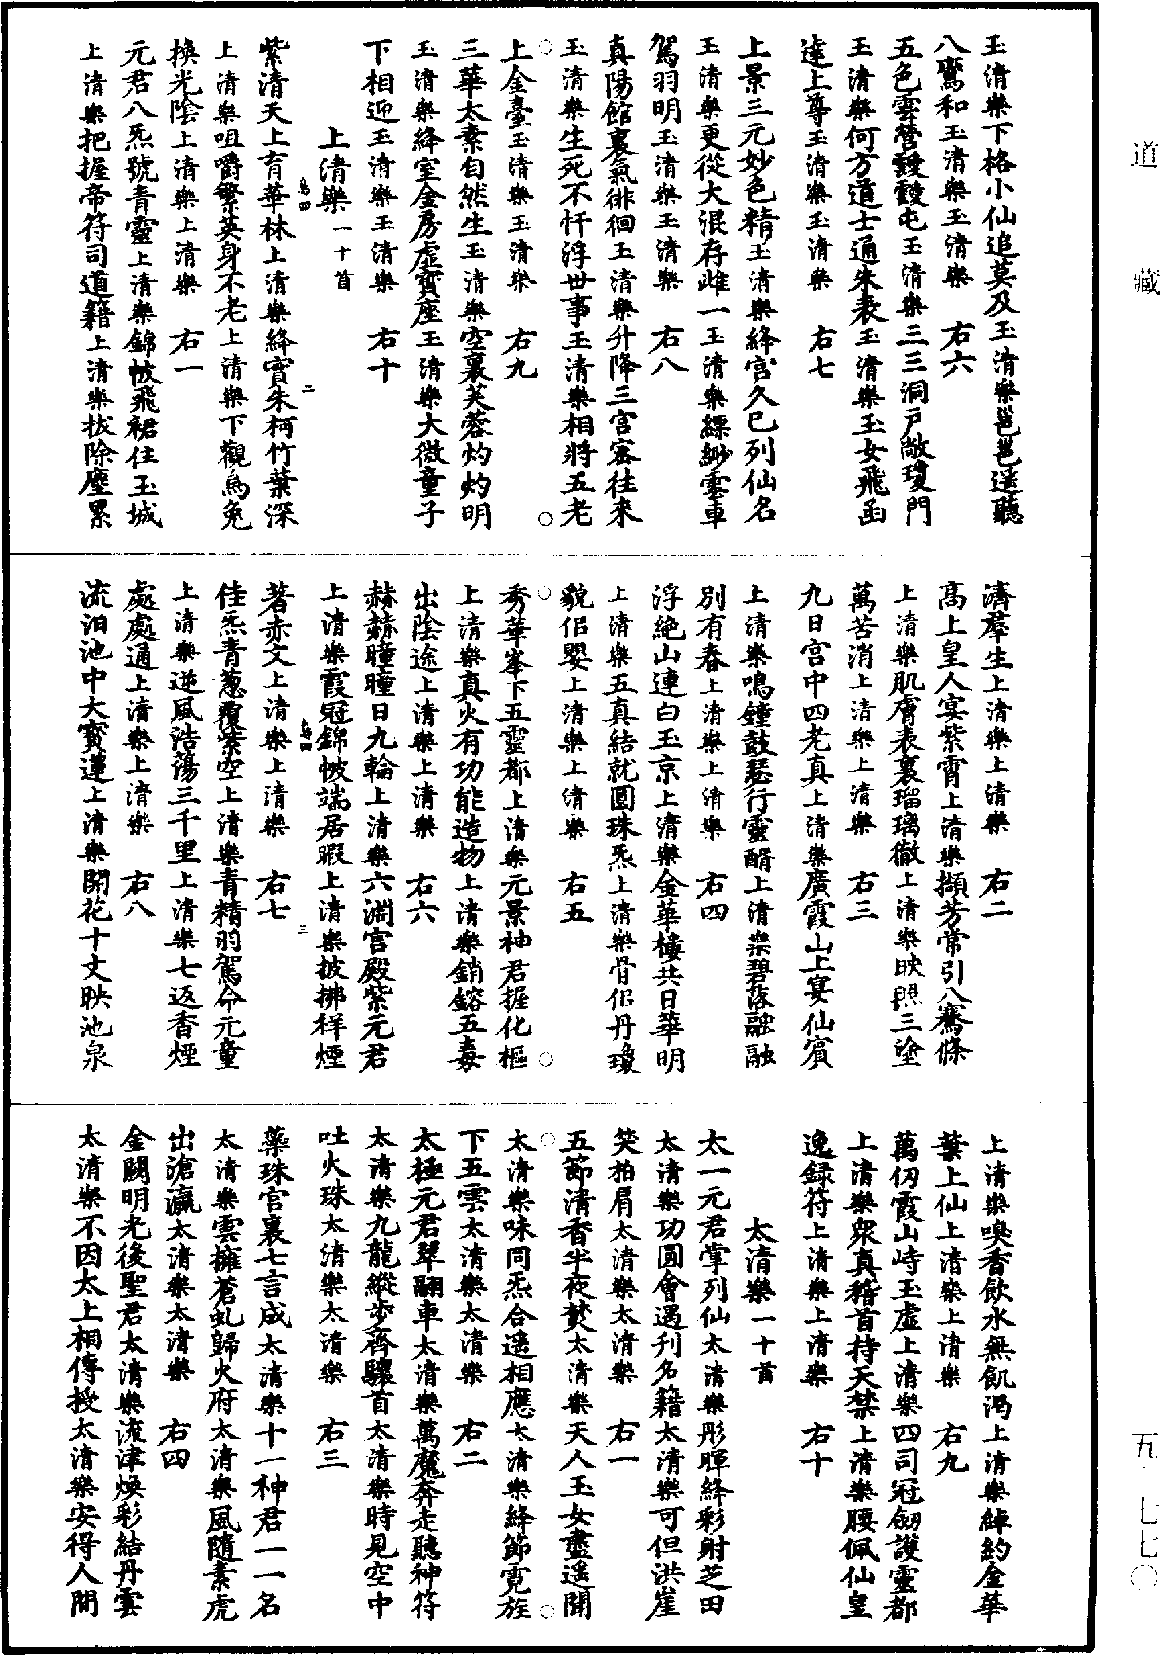 道藏
五·七七〇
玉清樂下格小仙追莫及玉清樂邕邕遥聽
八鸞和玉清樂玉清樂　右六
五色雲營靉靆屯玉清樂三三洞戸敞瓊門
玉清樂何方道士通朱表玉清樂玉女飛函
達上尊玉清樂玉清樂　右七
上景三元妙色精玉清樂絳宫久已列仙名
玉清樂更從大混存雌一玉清樂縹緲雲車
駕羽明玉清樂玉清樂　右八
真陽館裏氣徘徊玉清樂升降三宫密往来
玉清樂生死不忓浮世事玉清樂相將五老
上金臺玉清樂玉清樂　右九
三華太素自然生玉清樂空裏芙蓉灼灼明
玉清樂絳室金房虚寶座玉清樂大微童子
下相迎玉清樂玉清樂　右十
上清樂一十首
紫清天上有華林上清樂絳實朱柯竹葉深
上清樂咀嚼繁英身不老上清樂下觀烏兔
換光陰上清樂上清樂　右一
元君八炁號青靈上清樂錦帔飛裙住玉城
上清樂把握帝符司道籍上清樂拔除塵累
濟羣生上清樂上清樂　右二
高上皇人宴紫霄上清樂擷芳常引八騫條
上清樂肌膚表裏瑠璃徹上清樂映照三塗
萬苦消上清樂上清樂　右三
九日宫中四老真上清樂廣霞山上宴仙賓
上清樂鳴鐘鼓瑟行靈醑上清樂碧落融融
別有春上清樂上清樂　右四
浮絶山連白玉京上清樂金華樓共日華明
上清樂五真結就圓珠炁上清樂骨侣丹瓊
貌侣嬰上清樂上清樂　右五
秀華峯下五靈都上清樂元景神君握化樞
上清樂真火有功能造物上清樂銷鎔五毒
出陰途上清樂上清樂　右六
赫赫瞳瞳日九輪上清樂六淵宫殿紫元君
上清樂霞冠錦帔端居暇上清樂披拂祥煙
著赤文上清樂上清樂　右七
佳炁青葱覆紫空上清樂青精羽駕命元童
上清樂逆風浩蕩三千里上清樂七返香煙
處處通上清樂上清樂　右八
流汨池中大寳蓮上清樂開花十丈映池泉
上清樂嗅香飲水無飢渴上清樂綽約金華
葉上仙上清樂上清樂　右九
萬仞霞山峙玉虚上清樂四司冠劒護靈都
上清樂衆真稽首持天禁上清樂腰佩仙皇
逸録符上清樂上清樂　右十
太清樂一十首
太一元君掌列仙太清樂彤暉絳彩射芝田
太清樂功圓會遇刋名籍太清樂可但洪崖
笑拍肩太清樂太清樂　右一
五節清香半夜焚太清樂天人玉女盡遥聞
太清樂味同炁合遥相應太清樂絳節霓旌
下五雲太清樂太清樂　右二
太極元君翠翮車太清樂萬魔奔走聽神符
太清樂九龍縱步齊驤首太清樂時見空中
吐火珠太清樂太清樂　右三
蘂珠宫裏七言成太清樂十一神君一一名
太清樂雲擁蒼虬歸火府太清樂風隨素虎
出滄瀛太清樂太清樂　右四
金闕明光後聖君太清樂流津煥彩結丹雲
太清樂不因太上相傳授太清樂安得人間